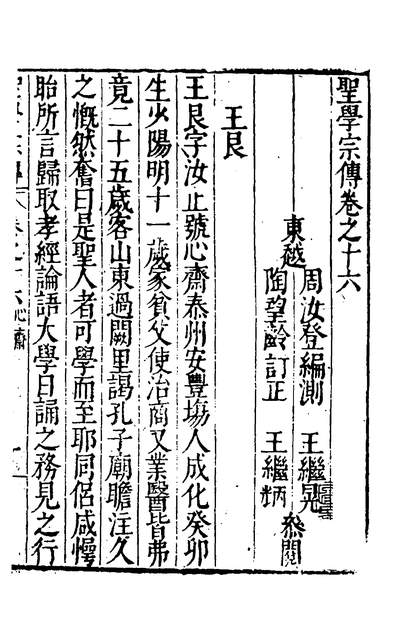 聖學宗傳卷之十六
東越
周汝登編測 王繼晃
陶望齡訂正 王繼炳
參閱
王艮
王艮字汝止號心齋泰州安豐塲人成化癸卯
生少陽明十一歲家貧父使治商又業醫皆弗
竟二十五歲客山東過闕里謁孔子廟瞻注久
之慨然奮曰是聖人者可學而至耶同侶咸愕
眙所言歸取孝經論語大學日誦之務見之行